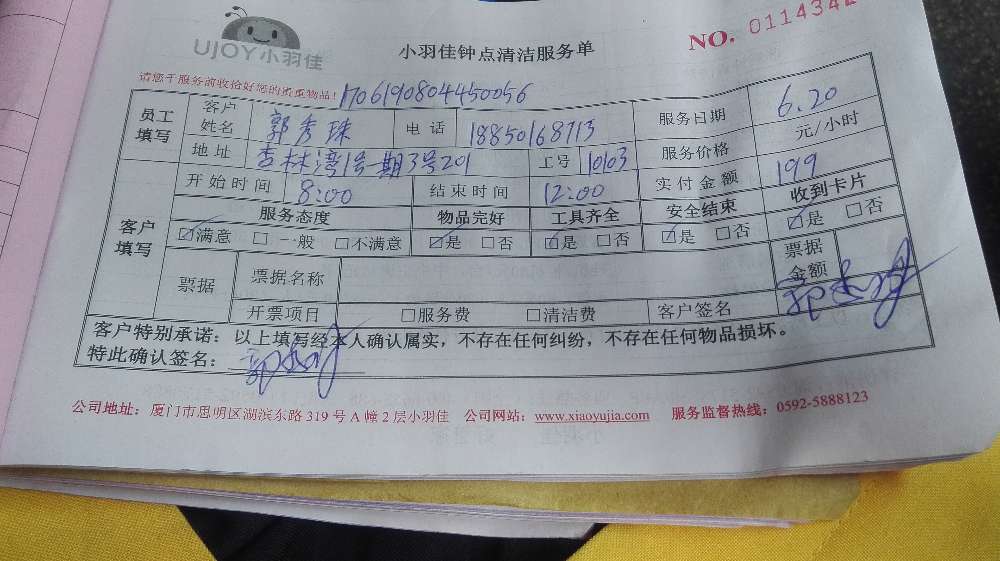 UJOY小羽佳
小羽佳钟点清洁服务单
NO. 011434
请您于服务前收拾好您的贵重物品! 1706190804450056
员工填写 客户姓名 郭秀珠 电话 18850168713 服务日期 6.20
地址 杏林湾1号一期3号201 工号 10103 服务价格 元/小时
开始时间 8:00 结束时间 12:00 实付金额 199
客户填写 服务态度 物品完好 工具齐全 安全结束 收到卡片
☑满意 □一般 □不满意 ☑是 □否 ☑是 □否 ☑是 □否 ☑是 □否
票据 票据名称 票据金额
开票项目 □服务费 □清洁费 客户签名
客户特别承诺:以上填写经本人确认属实,不存在任何纠纷,不存在任何物品损坏。
特此确认签名:
公司地址:厦门市思明区湖滨东路319号A幢2层小羽佳 公司网站:www.xiaoyujia.com 服务监督热线:0592-5888123